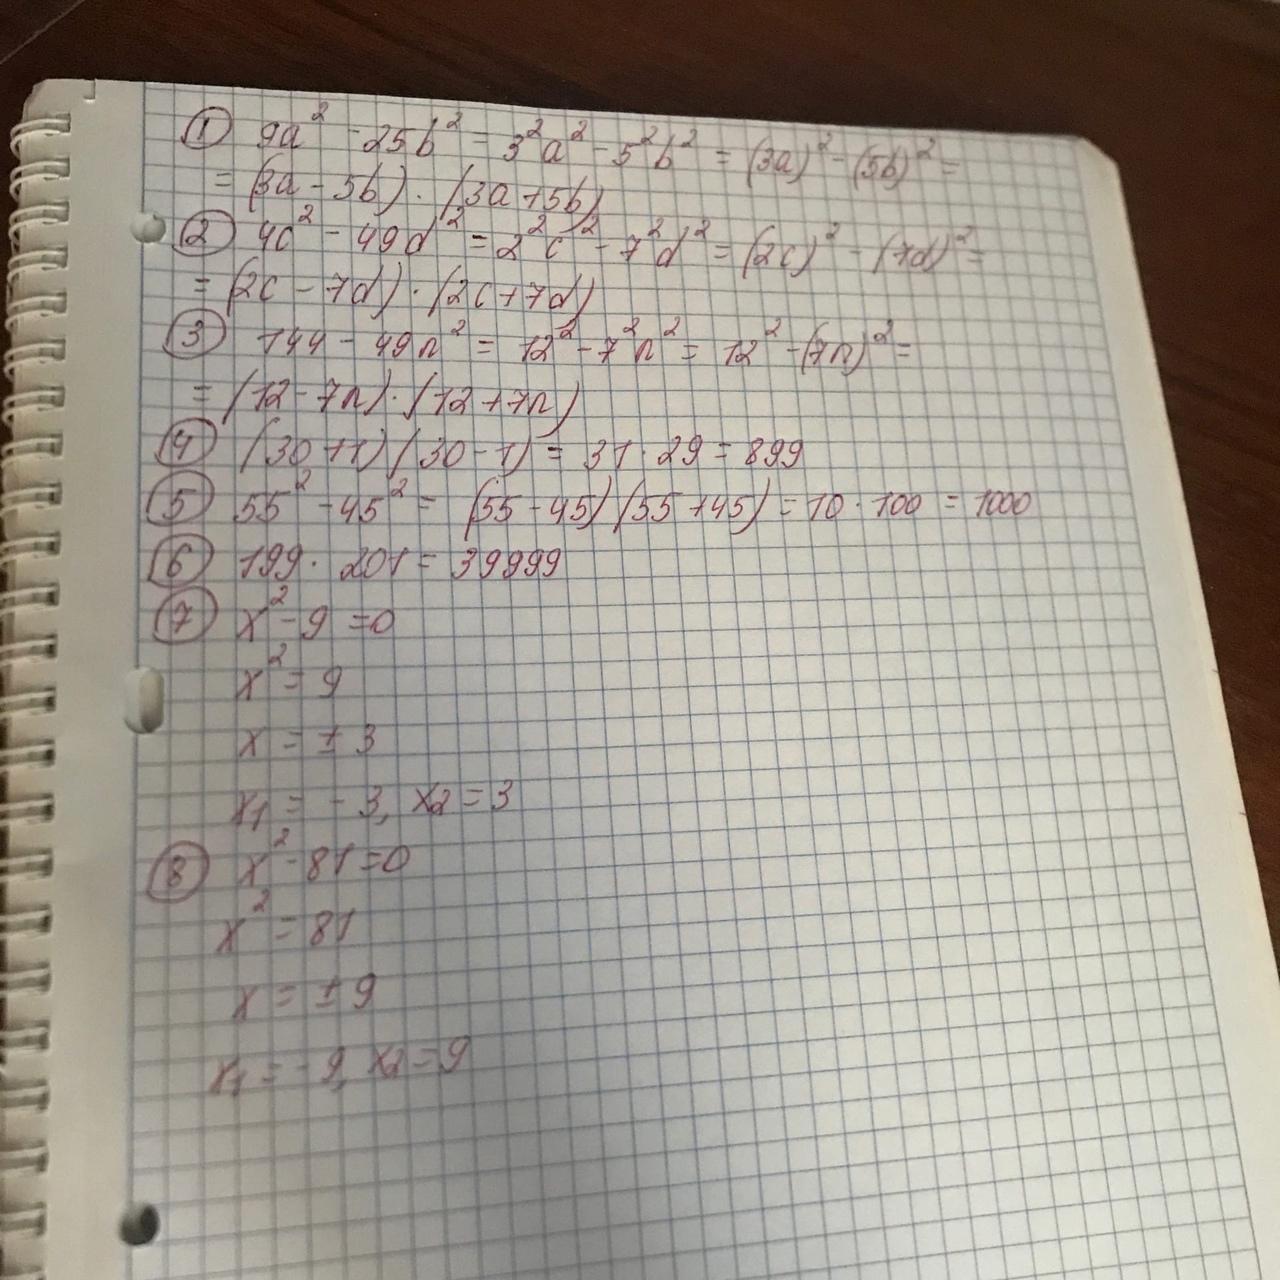 ① 9a² - 25b² = 3²a² - 5²b² = (3a)² - (5b)² =
= (3a - 5b) · (3a + 5b)
② 4c² - 49d² = 2²c² - 7²d² = (2c)² - (7d)² =
= (2c - 7d) · (2c + 7d)
③ 144 - 49n² = 12² - 7²n² = 12² - (7n)² =
= (12 - 7n) · (12 + 7n)
④ (30 + 1) (30 - 1) = 31 · 29 = 899
⑤ 55² - 45² = (55 - 45) (55 + 45) = 10 · 100 = 1000
⑥ 199 · 201 = 39999
⑦ x² - 9 = 0
x² = 9
x = ±3
x₁ = -3, x₂ = 3
⑧ x² - 81 = 0
x² = 81
x = ±9
x₁ = -9, x₂ = 9